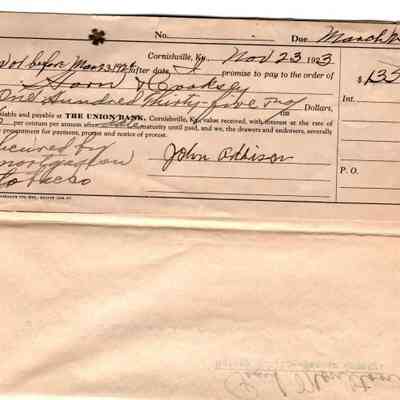 No. Due March
Cornishville, Ky., Nov 23 1923
Not before Mar 23 1924 after date I promise to pay to the order of
Horn & Cooksey $135
One Hundred thirty-five Dollars, Int.
able and payable at THE UNION BANK, Cornishville, Ky., value received, with interest at the rate of
per centum per annum after date maturity until paid, and we, the drawers and endorsers, severally
presentment for payment, protest and notice of protest.
Secured by John Addison
mortgage on
tobacco P. O.